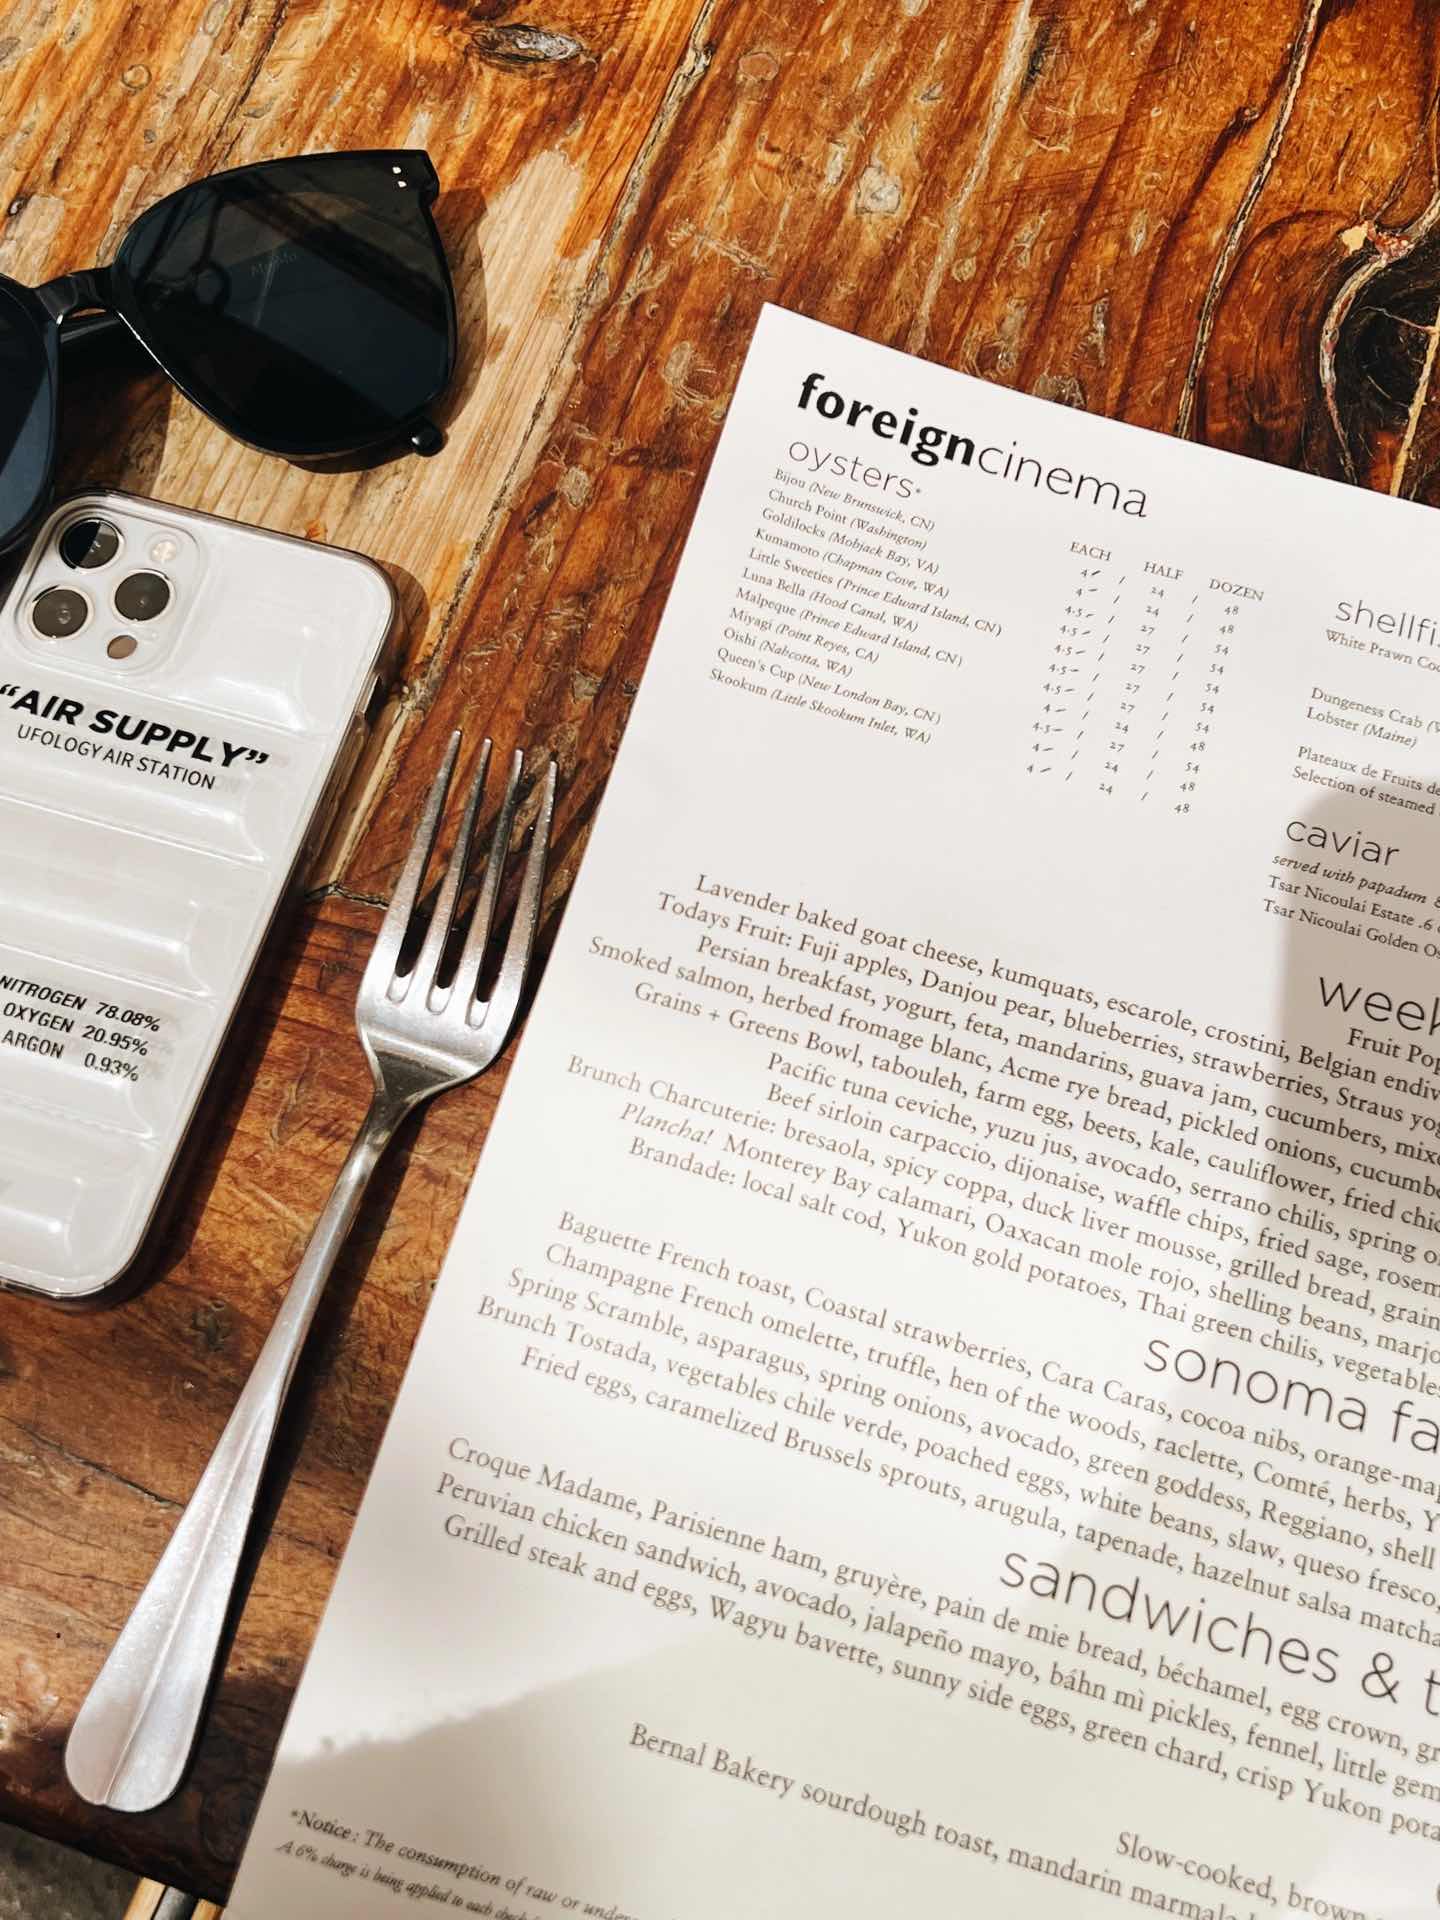 MeiMo
"AIR SUPPLY"
UFOLOGY AIR STATION
NITROGEN 78.08%
OXYGEN 20.95%
ARGON 0.93%
foreigncinema
oysters*
EACH HALF DOZEN
Bijou (New Brunswick, CN)
Church Point (Washington)
Goldilocks (Mobjack Bay, VA)
Kumamoto (Chapman Cove, WA)
Little Sweeties (Prince Edward Island, CN)
Luna Bella (Hood Canal, WA)
Malpeque (Prince Edward Island, CN)
Miyagi (Point Reyes, CA)
Oishi (Nahcotta, WA)
Queen's Cup (New London Bay, CN)
Skookum (Little Skookum Inlet, WA)
4- / 24 / 48
4- / 24 / 48
4.5- / 27 / 54
4.5- / 27 / 54
4.5- / 27 / 54
4.5- / 27 / 54
4- / 24 / 48
4.5- / 27 / 54
4- / 24 / 48
4- / 24 / 48
shellfi
White Prawn Coc
Dungeness Crab
Lobster (Maine)
Plateaux de Fruits de
Selection of steamed
caviar
served with papadum &
Tsar Nicoulai Estate .6
Tsar Nicoulai Golden Os
week
Fruit Pop
Lavender baked goat cheese, kumquats, escarole, crostini, Belgian endiv
Todays Fruit: Fuji apples, Danjou pear, blueberries, strawberries, Straus yog
Persian breakfast, yogurt, feta, mandarins, guava jam, cucumbers, mixe
Smoked salmon, herbed fromage blanc, Acme rye bread, pickled onions, cucumbe
Grains + Greens Bowl, tabouleh, farm egg, beets, kale, cauliflower, fried chic
Pacific tuna ceviche, yuzu jus, avocado, serrano chilis, spring o
Beef sirloin carpaccio, dijonaise, waffle chips, fried sage, rosem
Brunch Charcuterie: bresaola, spicy coppa, duck liver mousse, grilled bread, grain
Plancha! Monterey Bay calamari, Oaxacan mole rojo, shelling beans, marjo
Brandade: local salt cod, Yukon gold potatoes, Thai green chilis, vegetables
sonoma fa
Baguette French toast, Coastal strawberries, Cara Caras, cocoa nibs, orange-map
Champagne French omelette, truffle, hen of the woods, raclette, Comté, herbs, Y
Spring Scramble, asparagus, spring onions, avocado, green goddess, Reggiano, shell
Brunch Tostada, vegetables chile verde, poached eggs, white beans, slaw, queso fresco,
Fried eggs, caramelized Brussels sprouts, arugula, tapenade, hazelnut salsa matcha
sandwiches & t
Croque Madame, Parisienne ham, gruyère, pain de mie bread, béchamel, egg crown, gr
Peruvian chicken sandwich, avocado, jalapeño mayo, báhn mì pickles, fennel, little gem
Grilled steak and eggs, Wagyu bavette, sunny side eggs, green chard, crisp Yukon pota
Slow-cooked, brown
Bernal Bakery sourdough toast, mandarin marmala
*Notice: The consumption of raw or under
A 6% charge is being applied to each check